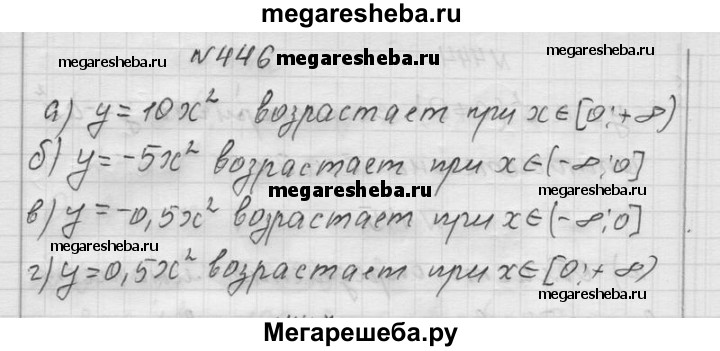 megaresheba.ru
№446
megaresheba.ru megaresheba.ru megaresheba.ru
а) y=10x² возрастает при x∈[0;+∞)
б) y=-5x² возрастает при x∈(-∞;0]
megaresheba.ru
в) y=-0,5x² возрастает при x∈(-∞;0]
megaresheba.ru
г) y=0,5x² возрастает при x∈[0;+∞)
megaresheba.ru megaresheba.ru
Мегарешеба.ру